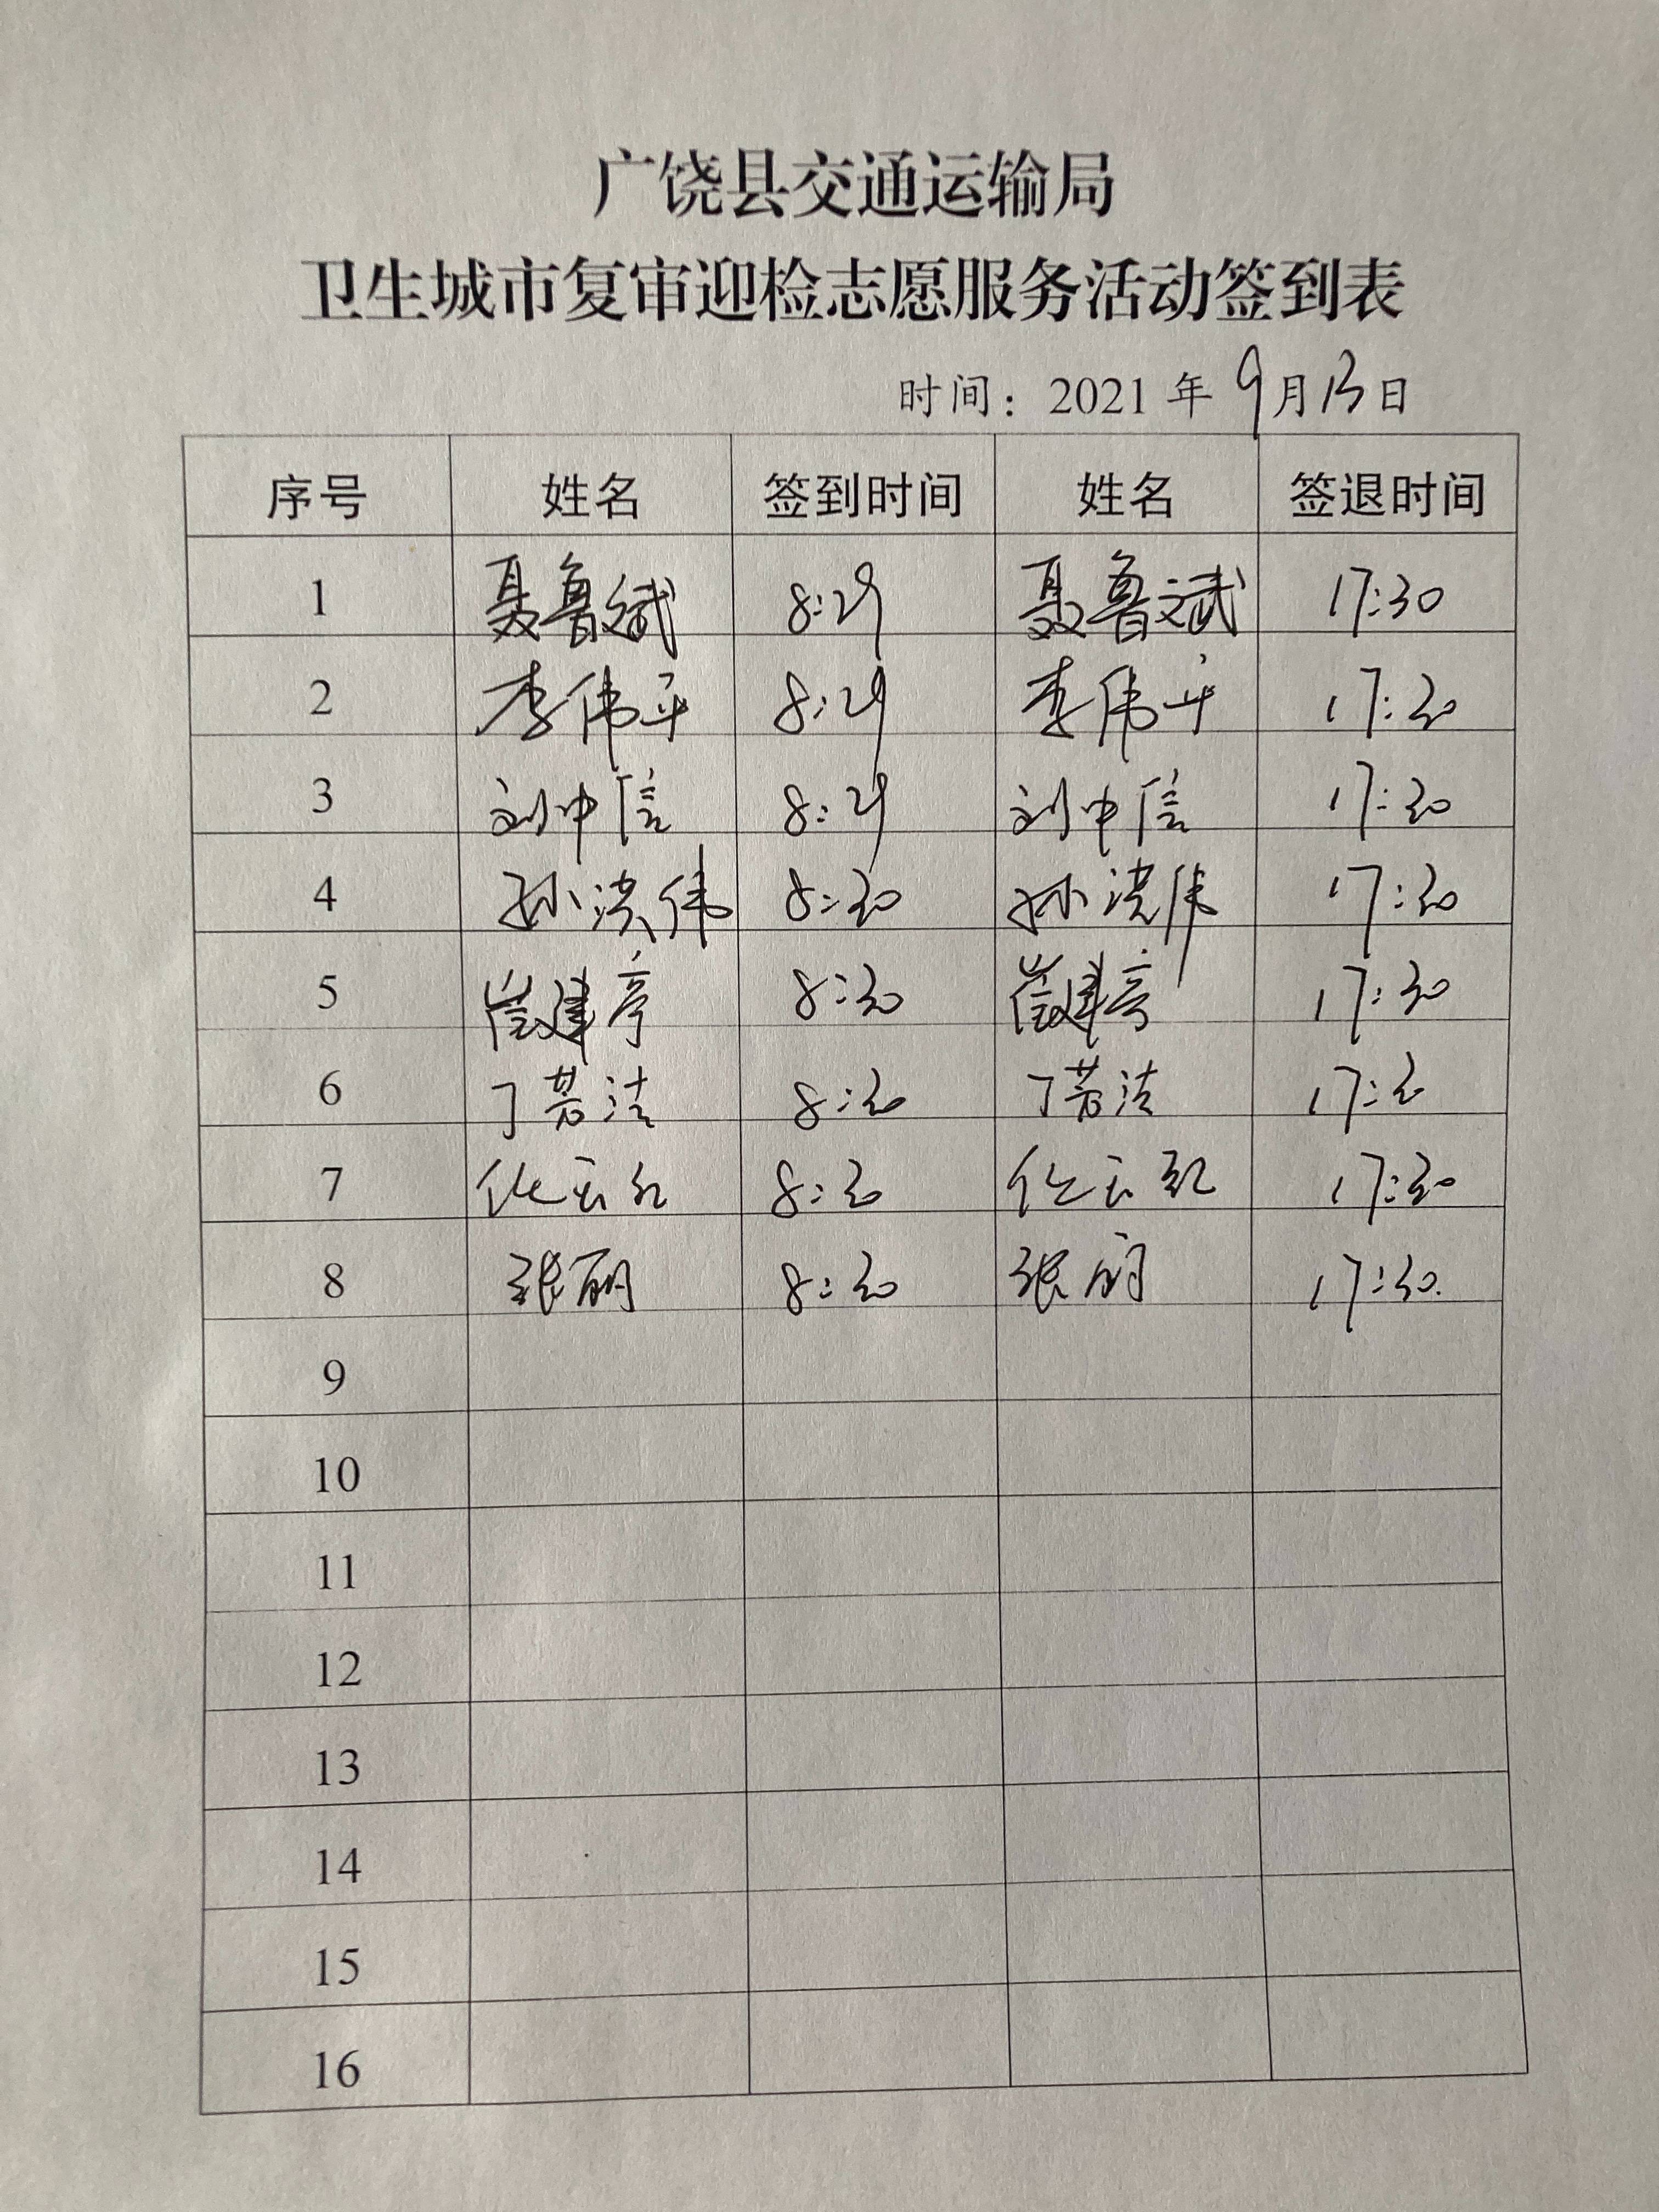 广饶县交通运输局
卫生城市复审迎检志愿服务活动签到表
时间：2021 年 9 月 13 日
序号 姓名 签到时间 姓名 签退时间
1 聂鲁斌 8:29 聂鲁斌 17:30
2 李伟平 8:29 李伟平 17:30
3 刘中信 8:29 刘中信 17:30
4 孙洪伟 8:30 孙洪伟 17:30
5 崔建亭 8:30 崔建亭 17:30
6 丁若洁 8:30 丁若洁 17:30
7 8:30 17:30
8 张丽 8:30 张丽 17:30
9
10
11
12
13
14
15
16